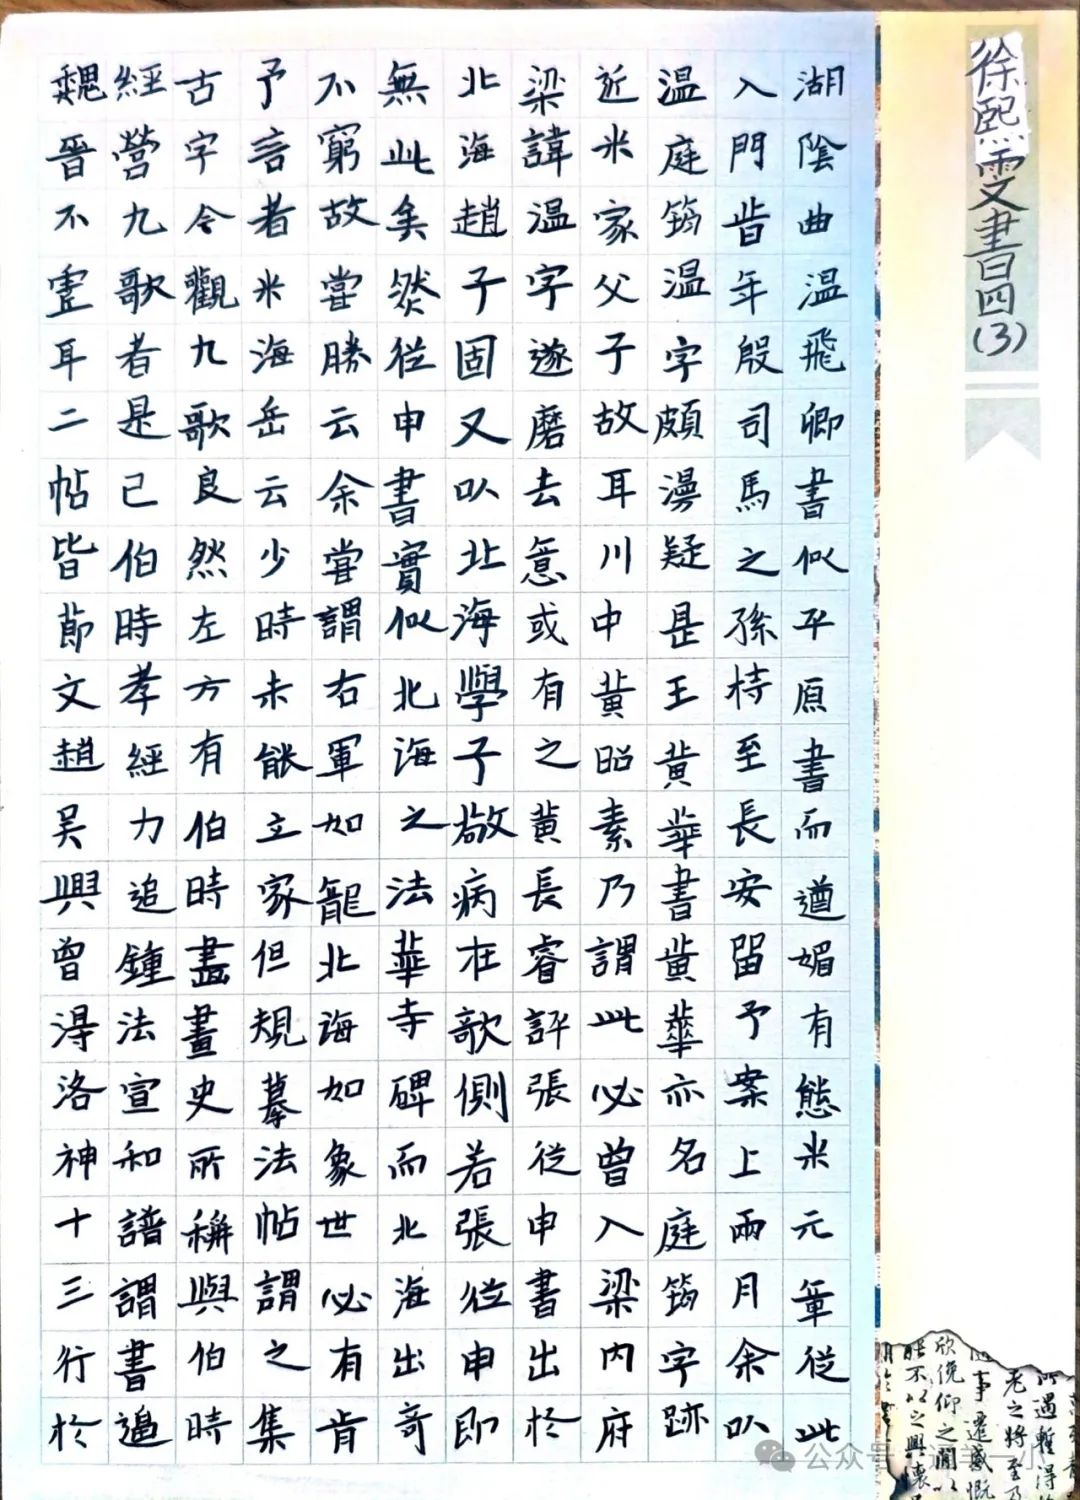 徐熙雯書四(3)
湖陰曲温飛卿書似平原書而遒媚有態米元章從此
入門昔年殷司馬之孫持至長安留予案上兩月余以
温庭筠温字頗漫疑是王黄華書黄華亦名庭筠字跡
近米家父子故耳川中黄昭素乃謂此必曾入梁内府
梁諱温字遂磨去意或有之黄長睿評張從申書出於
北海趙子固又以北海學子敬病在欹側若張從申即
無此矣然從申書實似北海之法華寺碑而北海出奇
不窮故嘗勝云余嘗謂右軍如龍北海如象世必有肯
予言者米海岳云少時未能立家但規摹法帖謂之集
古字令觀九歌良然左方有伯時畫畫史所稱與伯時
經營九歌者是已伯時孝經力追鍾法宣和譜謂書逼
魏晉不虚耳二帖皆節文趙吴興曾淂洛神十三行於
公众号